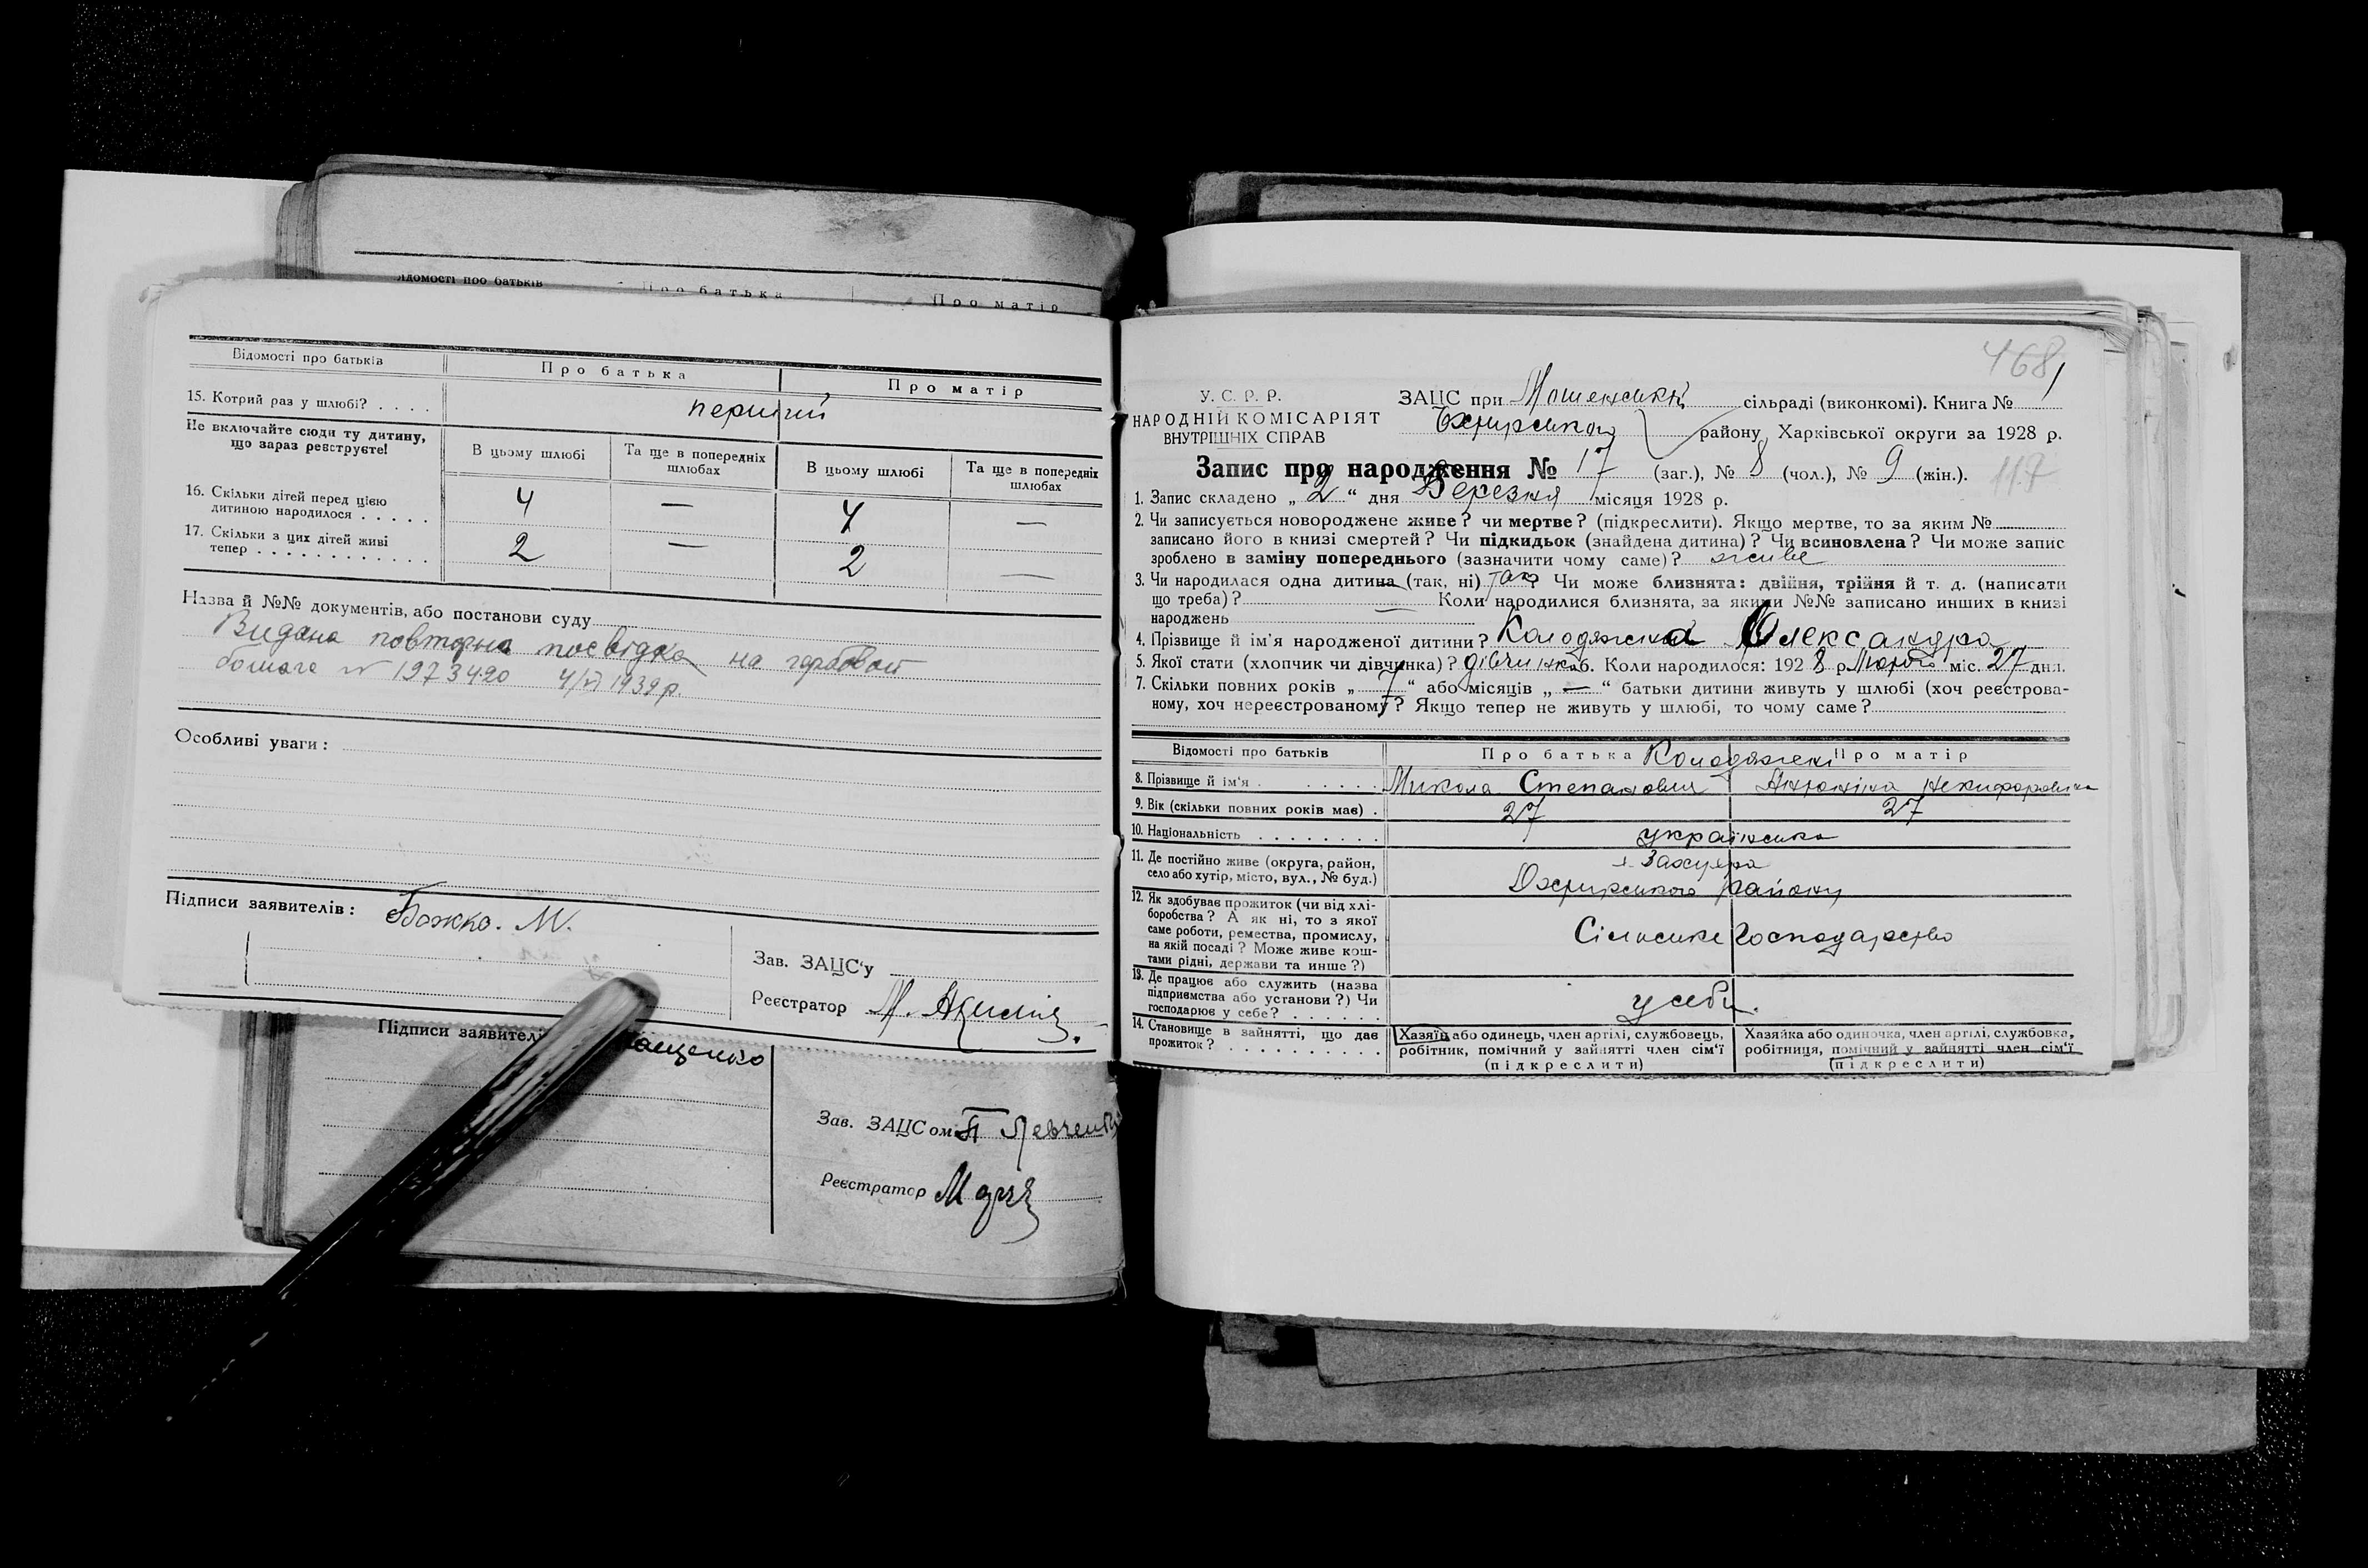 ідомості про батьків
Про батька
Про матір
Відомості про батьків
Про батька
Про матір
15. Котрий раз у шлюбі? . . . .
перший
Не включайте сюди ту дитину,
що зараз реєструєте!
В цьому шлюбі
Та ще в попередніх
шлюбах
В цьому шлюбі
Та ще в попередніх
шлюбах
16. Скільки дітей перед цією
дитиною народилося . . . . .
4
—
4
—
17. Скільки з цих дітей живі
тепер . . . . . . . . . . . . .
2
—
2
—
Назва й №№ документів, або постанови суду
Видана повторна посвідка на гербовой
бомаге № 1973420 4/VI 1939 р.
Особливі уваги:
Підписи заявителів: Божко. М.
Зав. ЗАЦС'у
Реєстратор М.
Підписи заявителі ащенко
Зав. ЗАЦСом П Левченко
Реєстратор
468
У. С. Р. Р.
НАРОДНІЙ КОМІСАРІЯТ
ВНУТРІШНІХ СПРАВ
ЗАЦС при Мошенській сільраді (виконкомі). Книга № 1
Охтирського району, Харківської округи за 1928 р.
Запис про народження № 17 (заг.), № 8 (чол.), № 9 (жін.).
117
1. Запис складено „ 2 “ дня Березня місяця 1928 р.
2. Чи записується новороджене живе? чи мертве? (підкреслити). Якщо мертве, то за яким №
записано його в книзі смертей? Чи підкидьок (знайдена дитина)? Чи всиновлена? Чи може запис
зроблено в заміну попереднього (зазначити чому саме)? живе
3. Чи народилася одна дитина (так, ні) так? Чи може близнята: двійня, трійня й т. д. (написати
що треба)? — Коли народилися близнята, за якими №№ записано инших в книзі
народжень
4. Прізвище й ім'я народженої дитини? Колодяжна Олександра
5. Якої стати (хлопчик чи дівчинка)? дівчинка 6. Коли народилося: 1928 р. Лютого міс. 27 дня.
7. Скільки повних років „ 7 “ або місяців „ — “ батьки дитини живуть у шлюбі (хоч реєстрова-
ному, хоч нереєстрованому? Якщо тепер не живуть у шлюбі, то чому саме?
Відомості про батьків
Про батька Колодяжні Про матір
8. Прізвище й ім'я . . . . . . .
Микола Степанович
Антоніна Некифоровна
9. Вік (скільки повних років має) .
27
27
10. Національність . . . . . . . .
українська
11. Де постійно живе (округа, район,
село або хутір, місто, вул., № буд.)
Охтирського району
12. Як здобуває прожиток (чи від хлі-
боробства? А як ні, то з якої
саме роботи, ремества, промислу,
на якій посаді? Може живе кош-
тами рідні, держави та инше?)
Сільське господарство
13. Де працює або служить (назва
підприємства або установи?) Чи
господарює у себе? . . . . . .
у себе.
14. Становище в зайнятті, що дає
прожиток? . . . . . . . . . . .
Хазяїн або одинець, член артілі, службовець,
робітник, помічний у зайнятті член сім'ї
(підкреслити)
Хазяйка або одиночка, член артілі, службовка,
робітниця, помічний у зайнятті член сім'ї
(підкреслити)